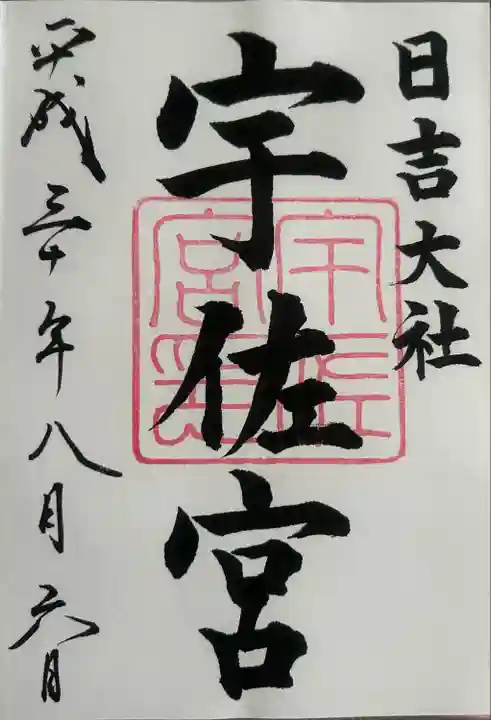 日吉大社
宇佐宮
平成三十年八月六日
宇佐宮印